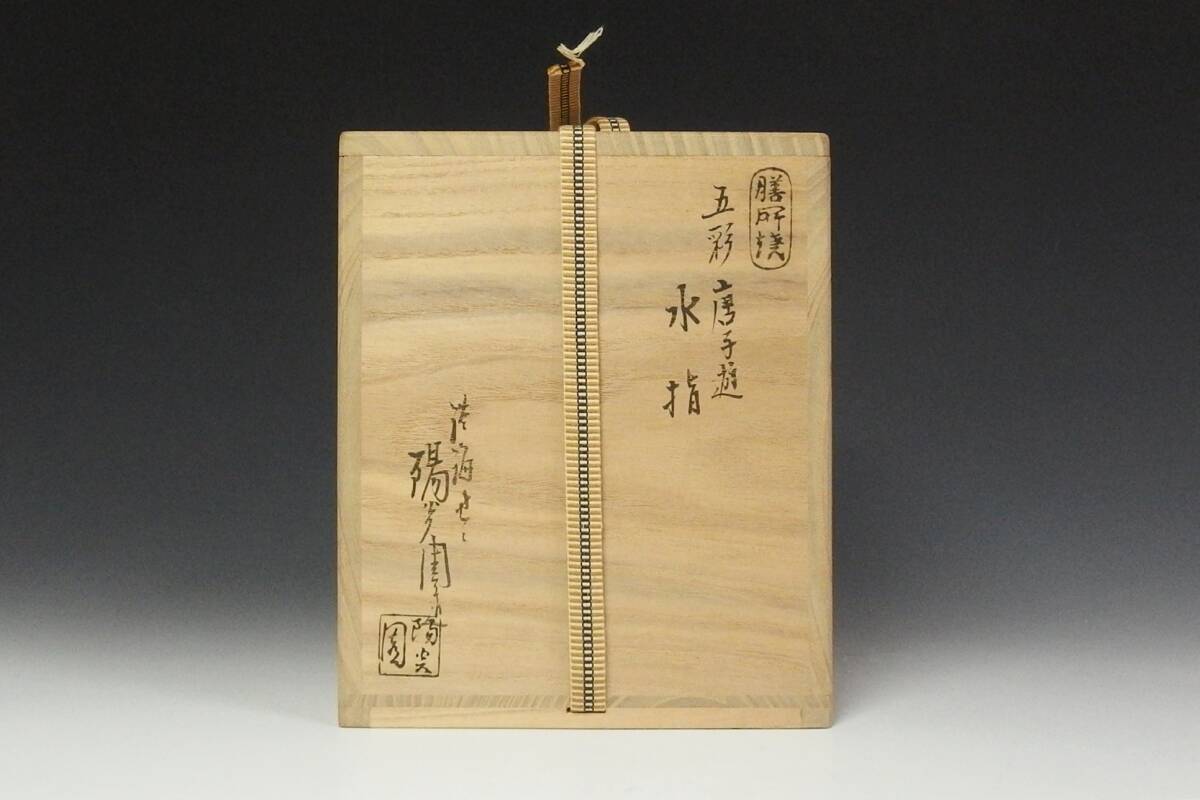 膳所焼
五彩 唐子遊
水指
陽炎園
陽炎園